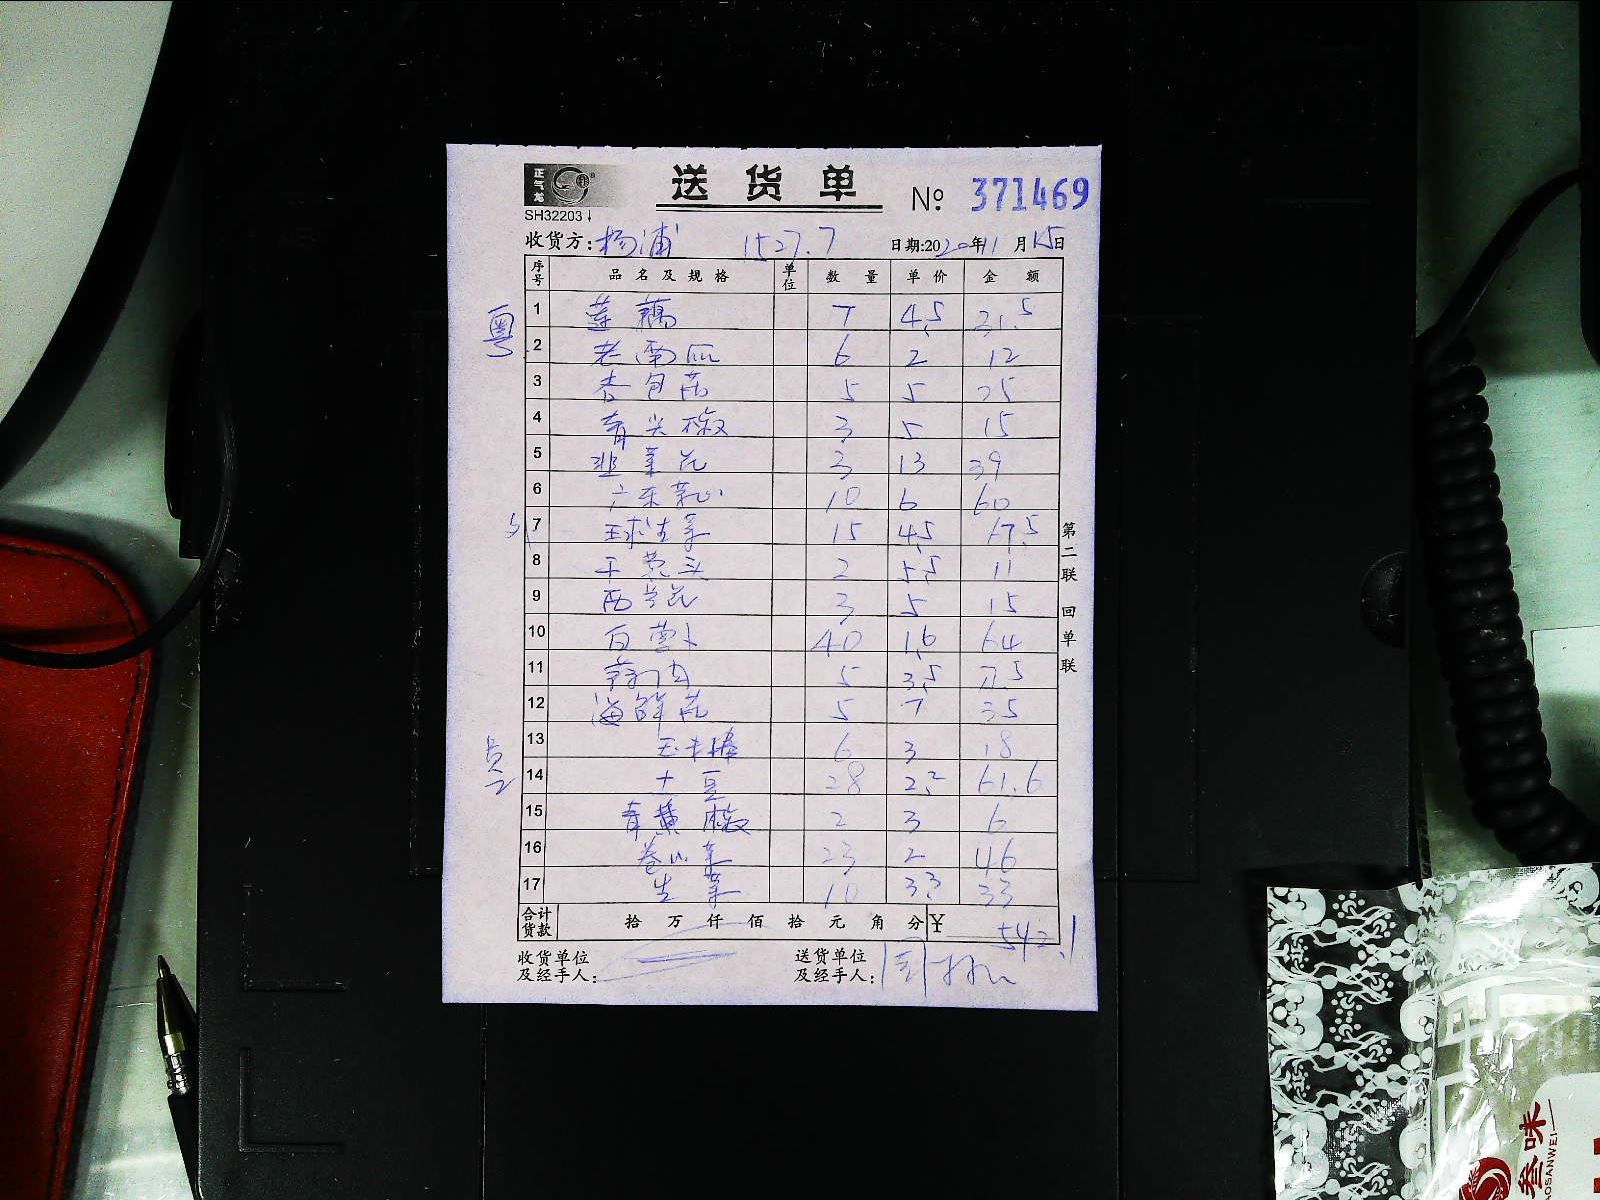 正气龙
SH32203
送货单 № 371469
收货方: 杨浦 1527.7 日期:2020年11月15日
序号 品名及规格 单位 数量 单价 金额
粤
1 莲藕 7 4.5 31.5
2 老南瓜 6 2 12
3 杏包菇 5 5 25
4 青尖椒 3 5 15
5 韭菜花 3 13 39
6 广东菜心 10 6 60
7 王球生菜 15 4.5 67.5
8 干葱头 2 5.5 11
9 西兰花 3 5 15
10 白萝卜 40 1.6 64
11 5 3.5 17.5
12 海鲜菇 5 7 35
点
13 玉米棒 6 3 18
14 土豆 28 2.2 61.6
15 青黄椒 2 3 6
16 卷心菜 23 2 46
17 生菜 10 3.3 33
合计货款 拾 万 仟 佰 拾 元 角 分 ¥ 542.1
收货单位及经手人:
送货单位及经手人:
第二联 回单联
叁味
OSANWEI